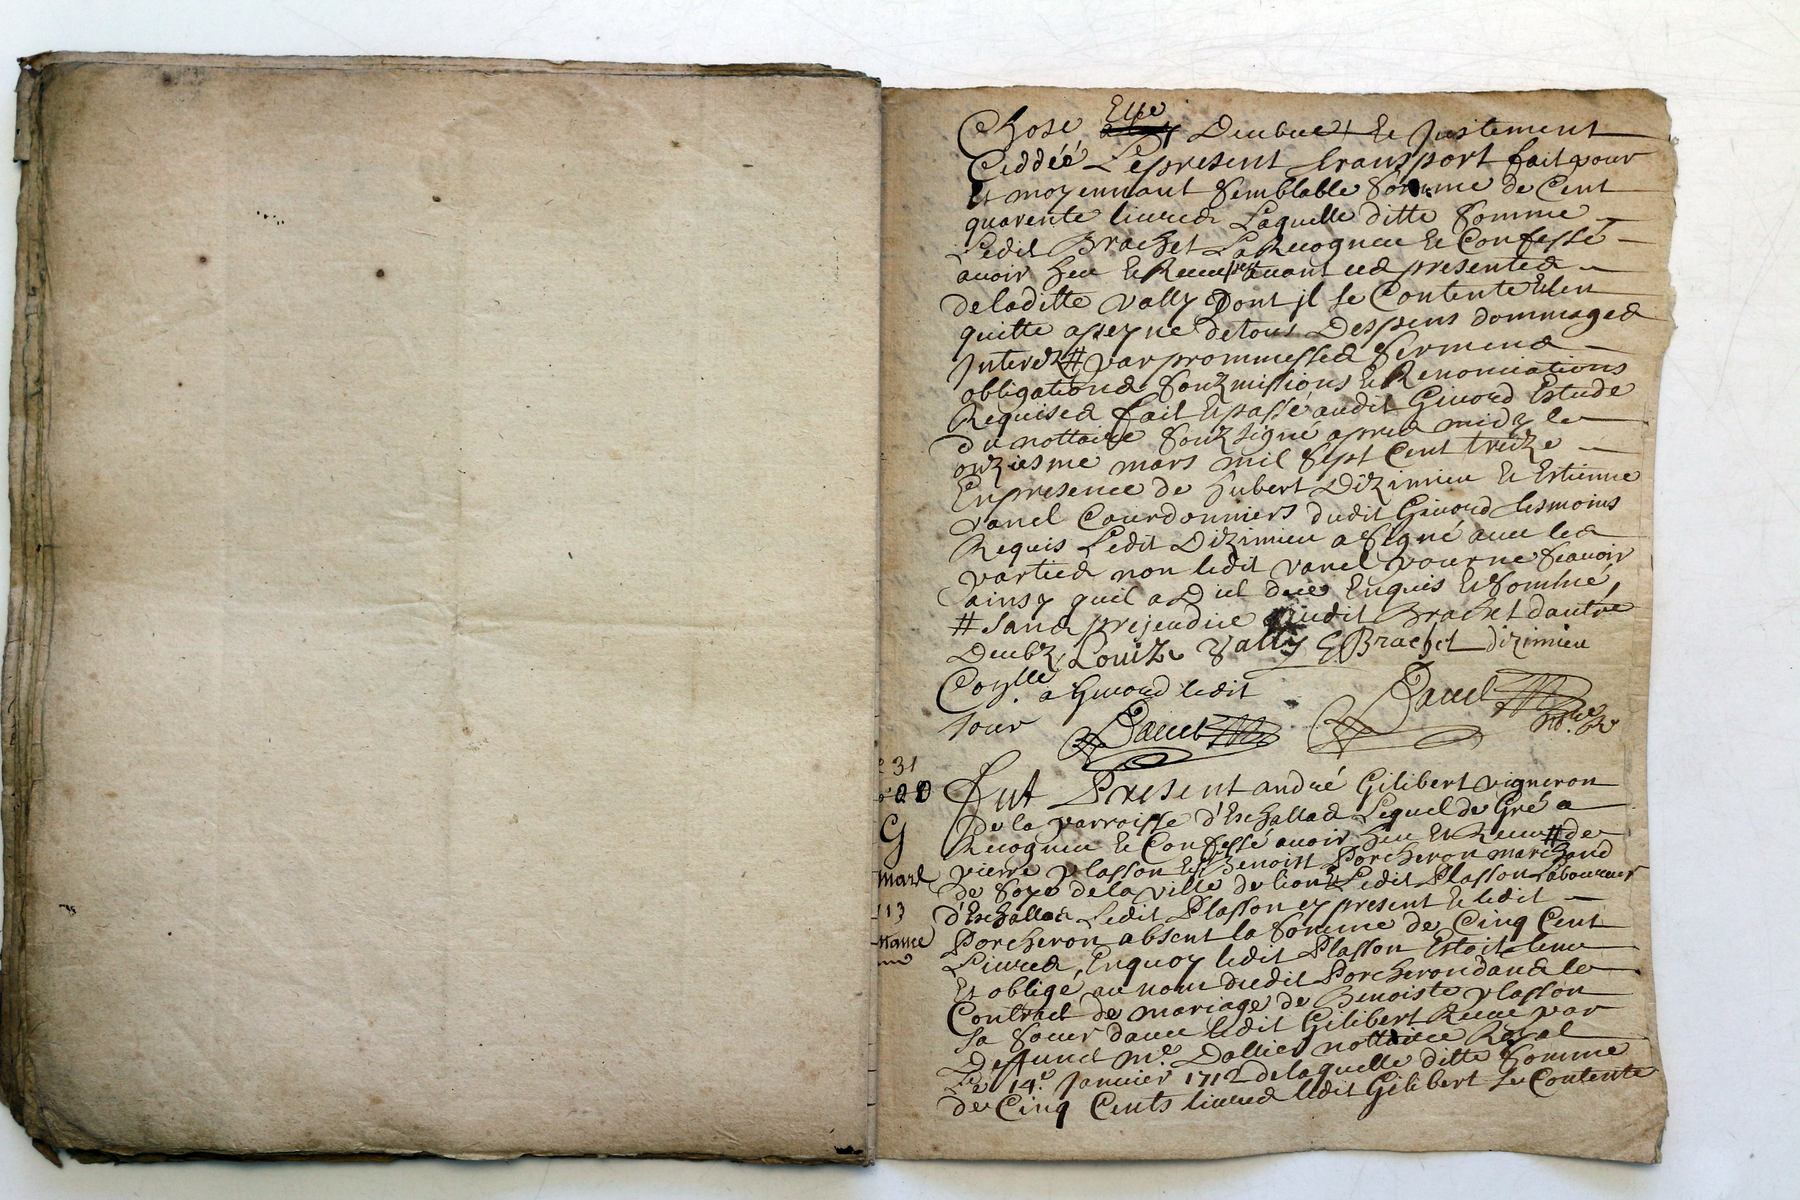 Chose Estre Deubue Et Justement
Ceddéé Le present transport fait pour
Et moyennant Semblable Somme de Cent
quarente livres Laquelle ditte Somme
Ledit Brachet La Recogneu Et Confessé
avoir heu Et Receu avant ces presentes
de laditte vally Dont jl Se Contente Et len
quitte a peyne de tous Despens dommages
Interez # par prommesses Sermens
obligations Soubzmissions Et Renonciations
Requises fait Et passé audit Givord Estude
Du nottaire Soubzsigné apres midy le
onziesme mars mil Sept Cent treize
En presence de hubert Dizimieu Et Estienne
vanel Courdonniers dudit Givord tesmoins
Requis Ledit Dizimieu a Signé avec les
parties non ledit vanel pour ne Scavoir
ainsy quil a Dit De ce Enquis Et Sommé,
# Sans prejeudice audit Brachet dautre
Deubz, Louize Vally E Brachet dizimieu
Con.lle a Givord ledit
Jour
31
Fut Present andré Gilibert vigneron
De la parroisse d'Eschallas Lequel de Gré a
Recogneu Et Confessé avoir heu Et Receu # de
pierre plasson Et Benoist Porcheron marchand
de Soye de la ville de lion Et Ledit Plasson laboureur
d'Eschallas Ledit Plasson cy present Et ledit
Porcheron absent la Somme de Cinq Cent
Livres, En quoy ledit Plasson Estoit tenu
Et obligé au nom dudit Porcheron dans le
Contract de mariage de Benoiste plasson
Sa Soeur davec ledit Gilibert Receu par
Deffunct me. Dallier nottaire Royal
Le 14e. Janvier 1712 de laquelle ditte Somme
de Cinq Cents livres ledit Gilibert Se Contente
G
mars
113
ttance